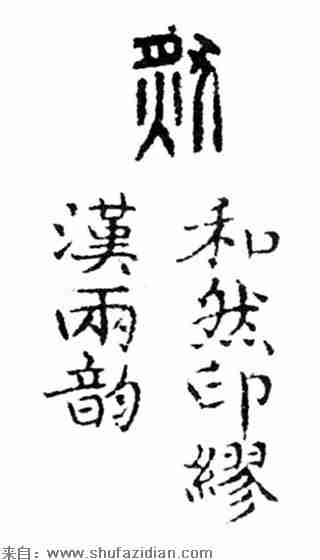 和然印繆
漢兩韵
来自：www.shufazidian.com